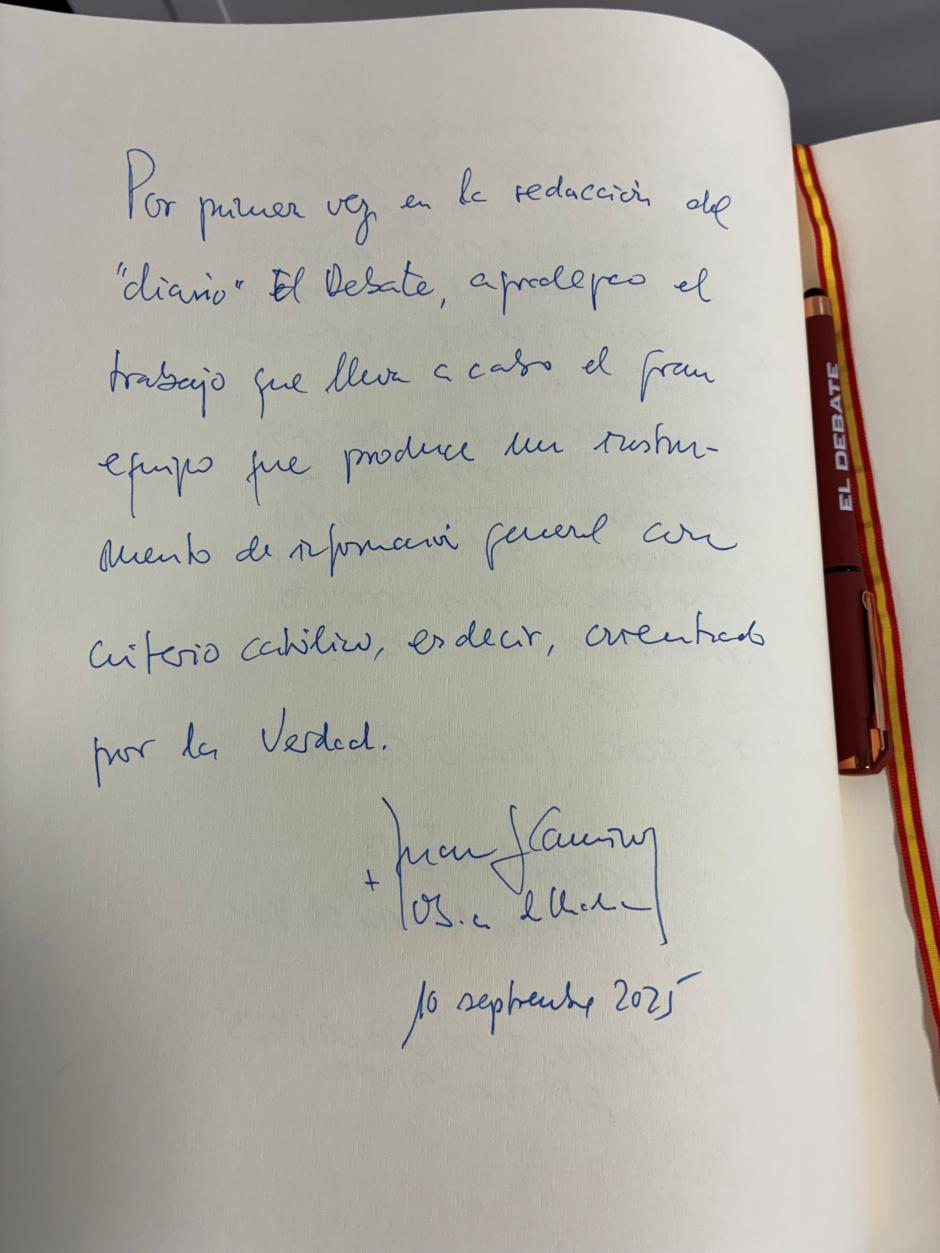 Por primer vez en la redacción del
"diario" El Debate, agradezco el
trabajo que lleva a cabo el gran
equipo que produce un instru-
mento de información general con
criterio católico, es decir, orientado
por la Verdad.
+ Juan
Ob.
10 septiembre 2025
EL DEBATE